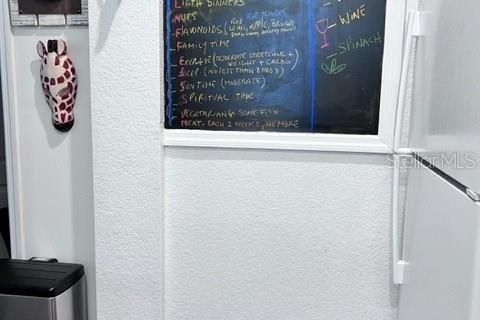 LIGTH DINNERS
NUTS
FLAVONOIDS (RED WINE, APPLE,
FAMILY TIME
EXERCISE (MODERATE STRETCHING + WEIGHT + CARDO)
SLEEP (NO LESS THAN 8 HOD)
SUN TIME (MODERATE)
SPIRITUAL TIME
VEGETARIAN & SOME FISH
MEAT: EACH 2 WEEKS, NO MORE
- WINE
- SPINACH
Stellar MLS